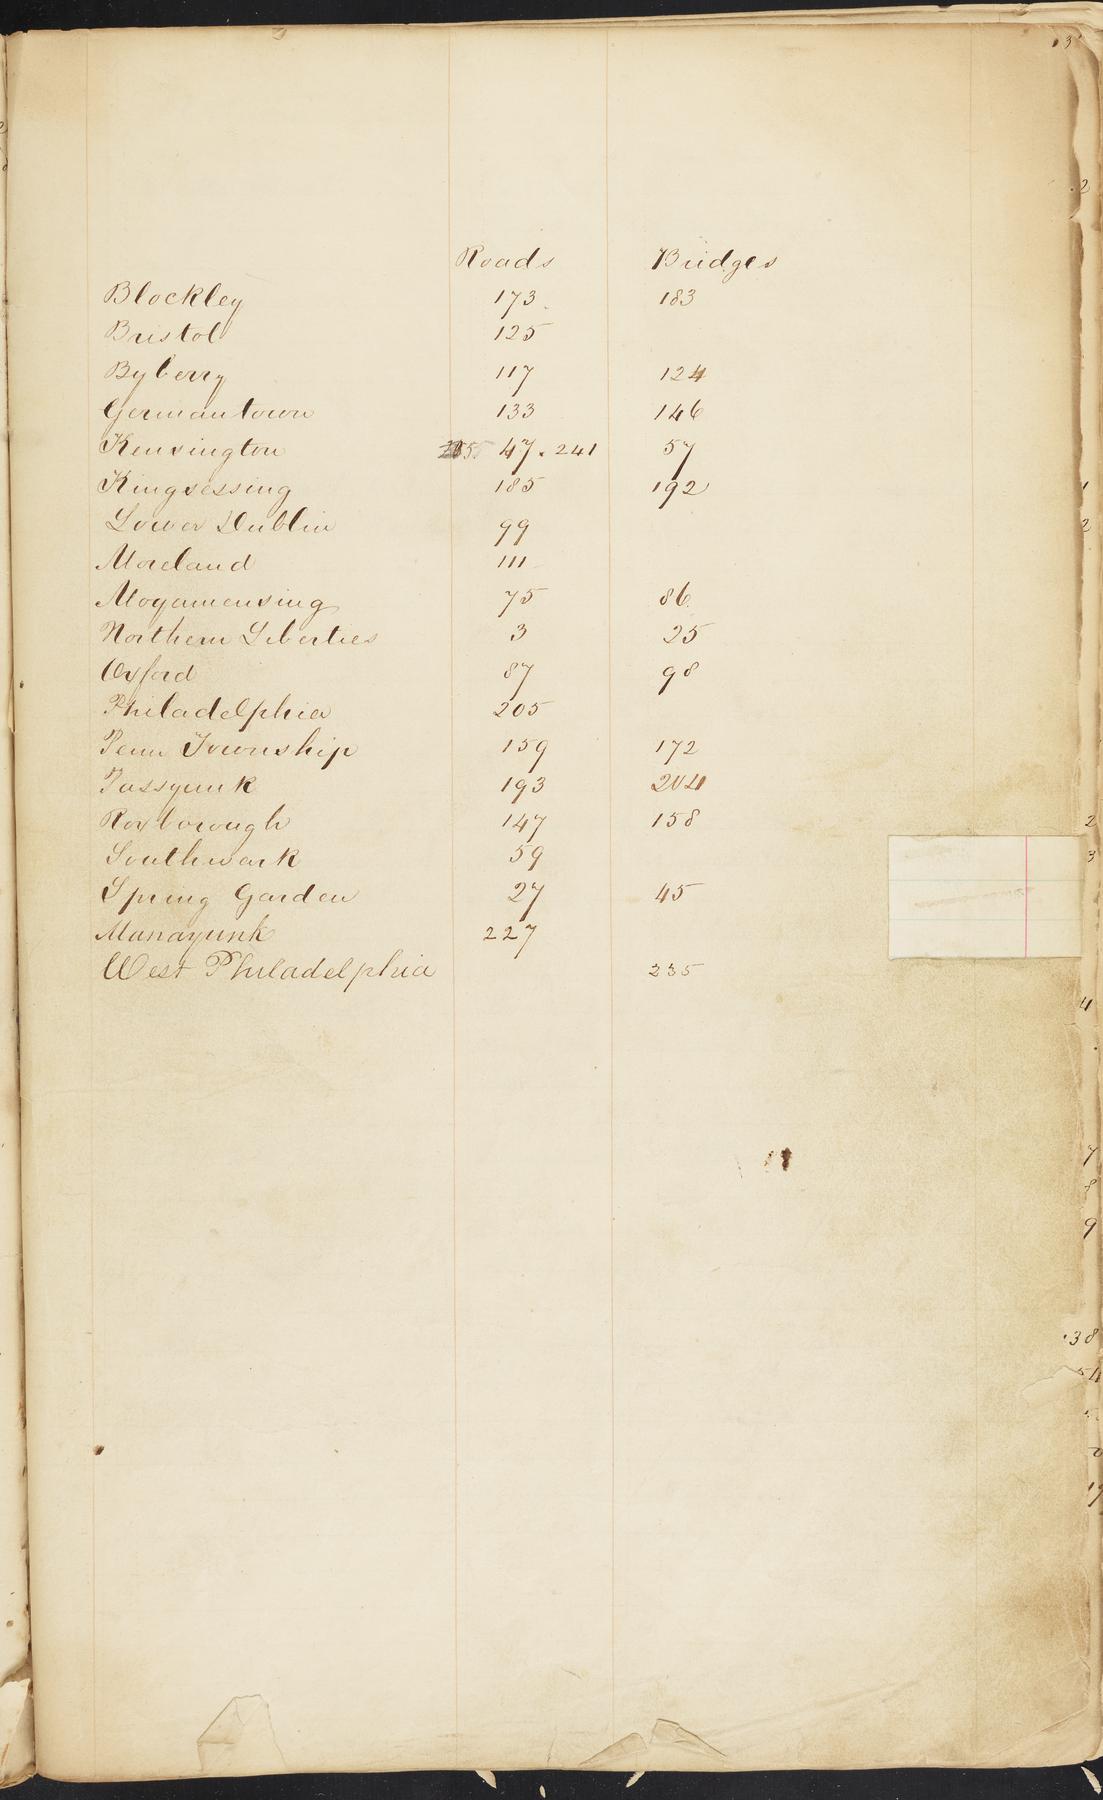 Roads Bridges
Blockley 173 183
Bristol 125
Byberry 117 124
Germantown 133 146
Kensington 47. 241 57
Kingsessing 185 192
Lower Dublin 99
Moreland 111
Moyamensing 75 86
Northern Liberties 3 25
Oxford 87 98
Philadelphia 205
Penn Township 159 172
Passyunk 193 204
Roxborough 147 158
Southwark 59
Spring Garden 27 45
Manayunk 227
West Philadelphia 235